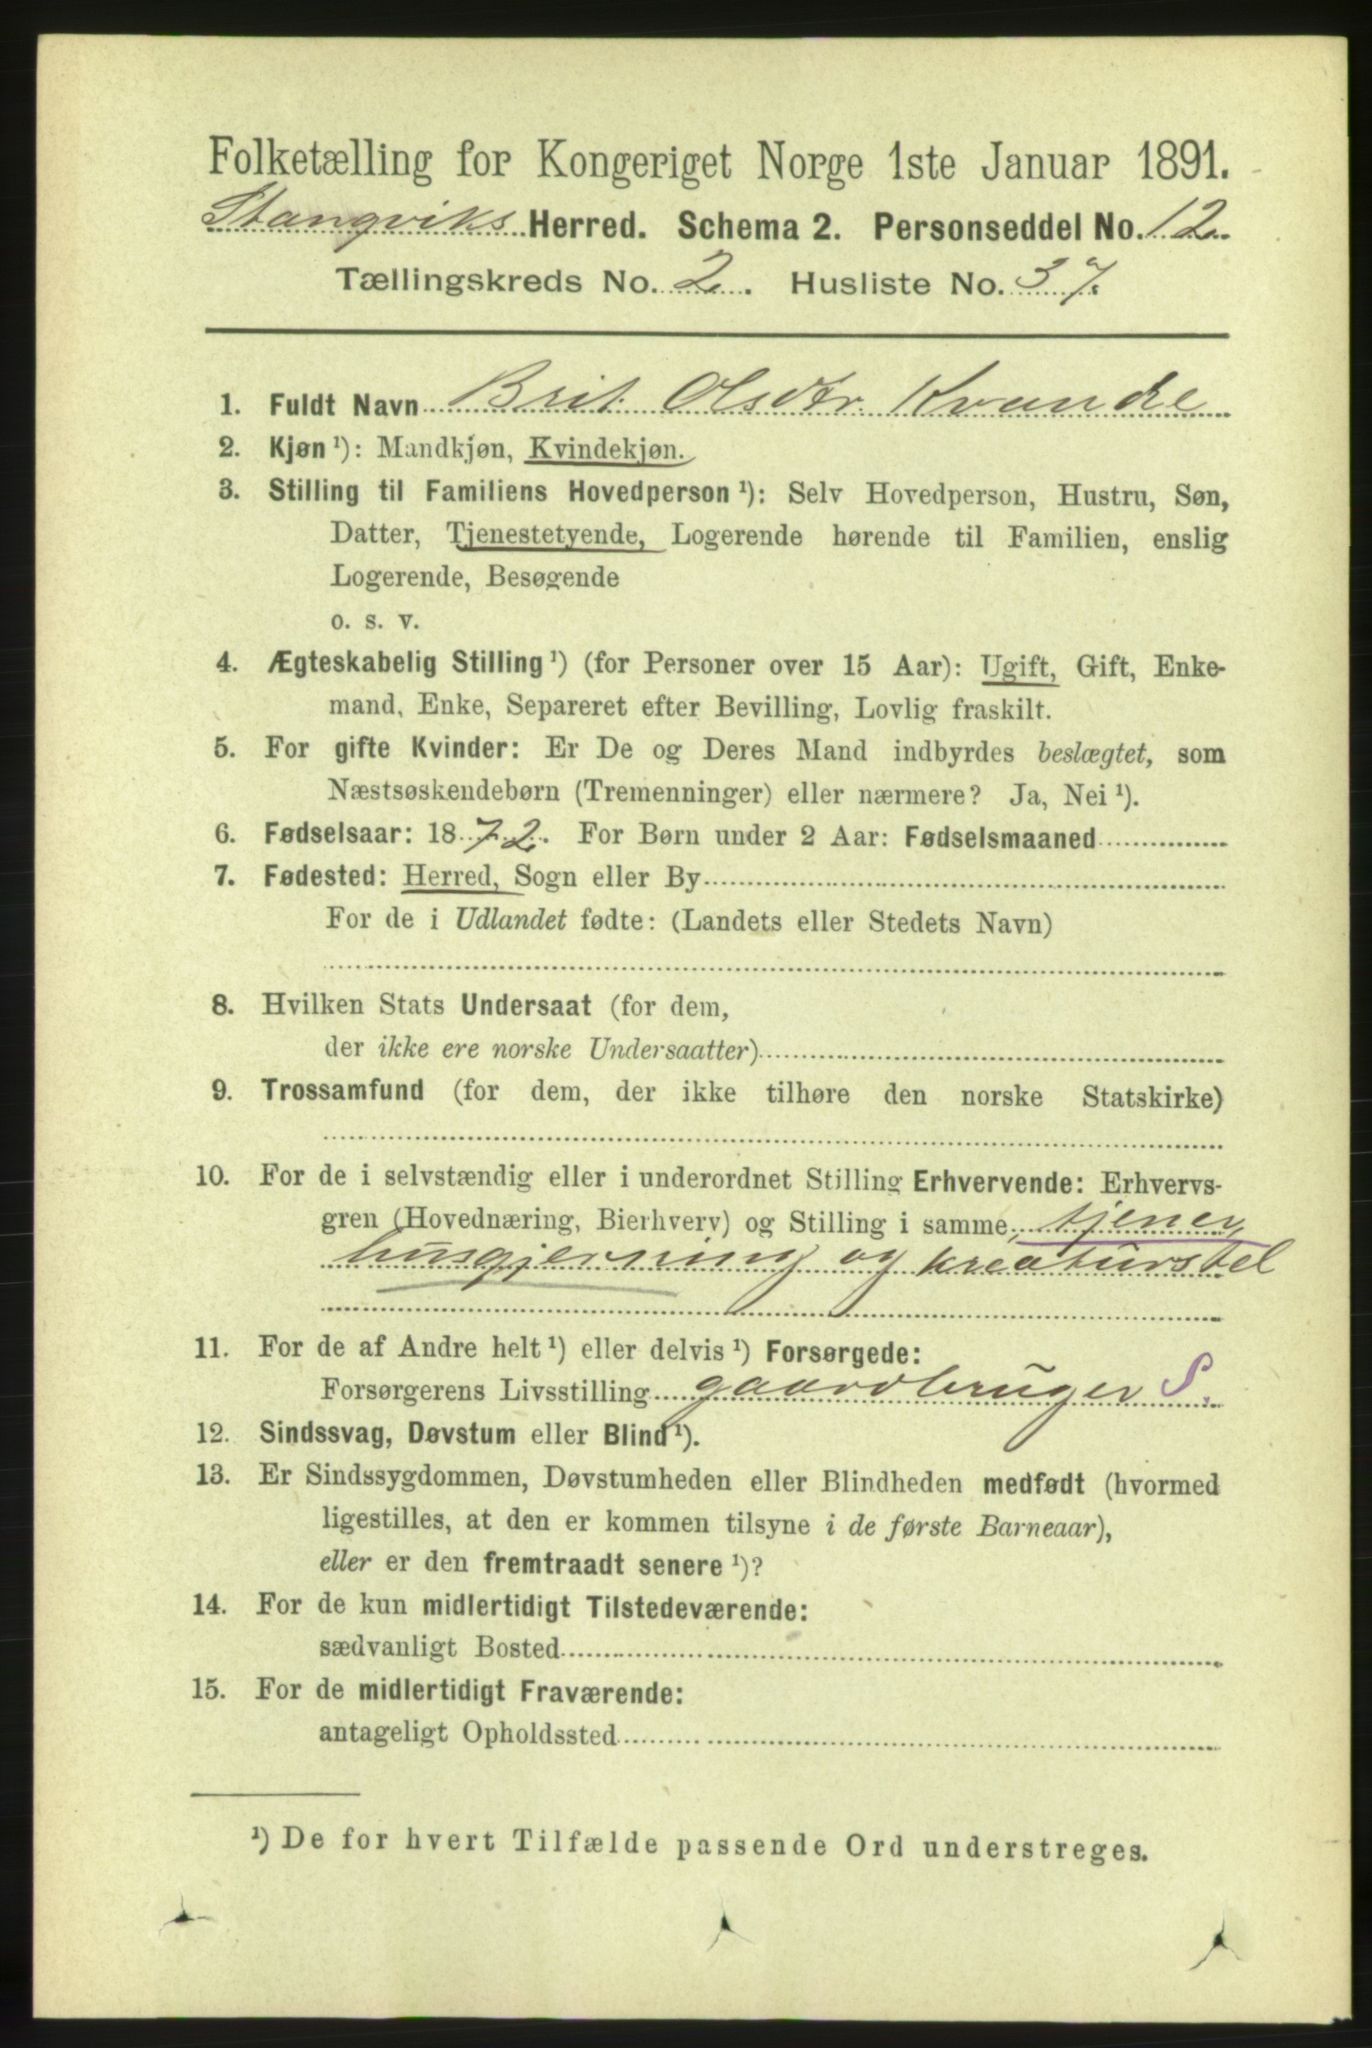 Folketælling for Kongeriget Norge 1ste Januar 1891.
Stangviks Herred. Schema 2. Personseddel No. 12.
Tællingskreds No. 2. Husliste No. 37.
1. Fuldt Navn Brit Olsdtr. Kvande
2. Kjøn ¹): Mandkjøn, Kvindekjøn.
3. Stilling til Familiens Hovedperson ¹): Selv Hovedperson, Hustru, Søn,
Datter, Tjenestetyende, Logerende hørende til Familien, enslig
Logerende, Besøgende
o. s. v.
4. Ægteskabelig Stilling ¹) (for Personer over 15 Aar): Ugift, Gift, Enke-
mand, Enke, Separeret efter Bevilling, Lovlig fraskilt.
5. For gifte Kvinder: Er De og Deres Mand indbyrdes beslægtet, som
Næstsøskendebørn (Tremenninger) eller nærmere? Ja, Nei ¹).
6. Fødselsaar: 1872. For Børn under 2 Aar: Fødselsmaaned
7. Fødested: Herred, Sogn eller By
For de i Udlandet fødte: (Landets eller Stedets Navn)
8. Hvilken Stats Undersaat (for dem,
der ikke ere norske Undersaatter)
9. Trossamfund (for dem, der ikke tilhøre den norske Statskirke)
10. For de i selvstændig eller i underordnet Stilling Erhvervende: Erhvervs-
gren (Hovednæring, Bierhverv) og Stilling i samme, tjener,
husgjerning og kreaturstel
11. For de af Andre helt ¹) eller delvis ¹) Forsørgede:
Forsørgerens Livsstilling gaardbruger S.
12. Sindssvag, Døvstum eller Blind ¹).
13. Er Sindssygdommen, Døvstumheden eller Blindheden medfødt (hvormed
ligestilles, at den er kommen tilsyne i de første Barneaar),
eller er den fremtraadt senere ¹)?
14. For de kun midlertidigt Tilstedeværende:
sædvanligt Bosted
15. For de midlertidigt Fraværende:
antageligt Opholdssted
¹) De for hvert Tilfælde passende Ord understreges.